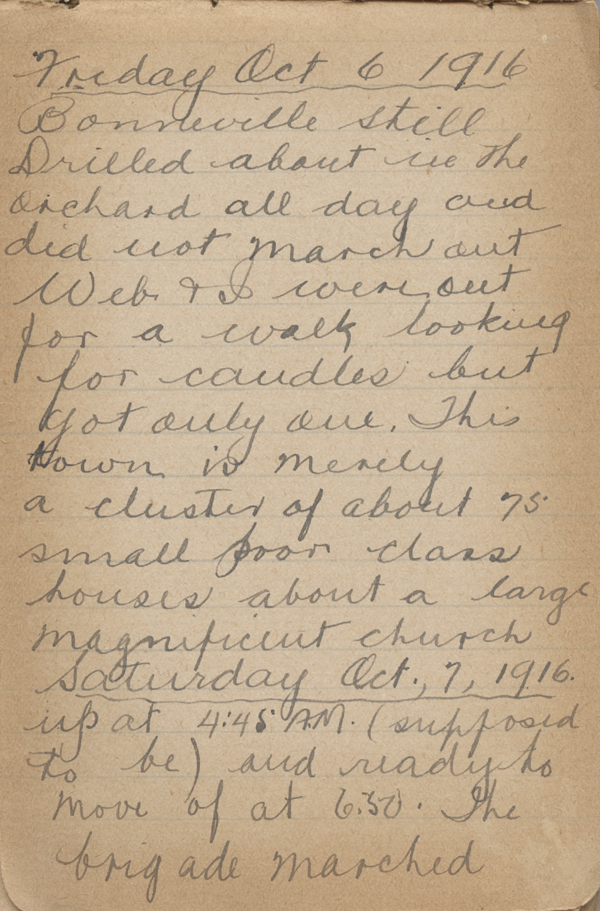 Friday Oct 6 1916
Bonneville still
Drilled about in the
orchard all day and
did not march out
Web & I were out
for a walk looking
for candles but
got only one. This
town is merely
a cluster of about 75
small poor class
houses about a large
magnificient church
Saturday Oct., 7, 1916.
up at 4:45 A.M. (supposed
to be) and ready to
move of at 6:50. The
brigade marched